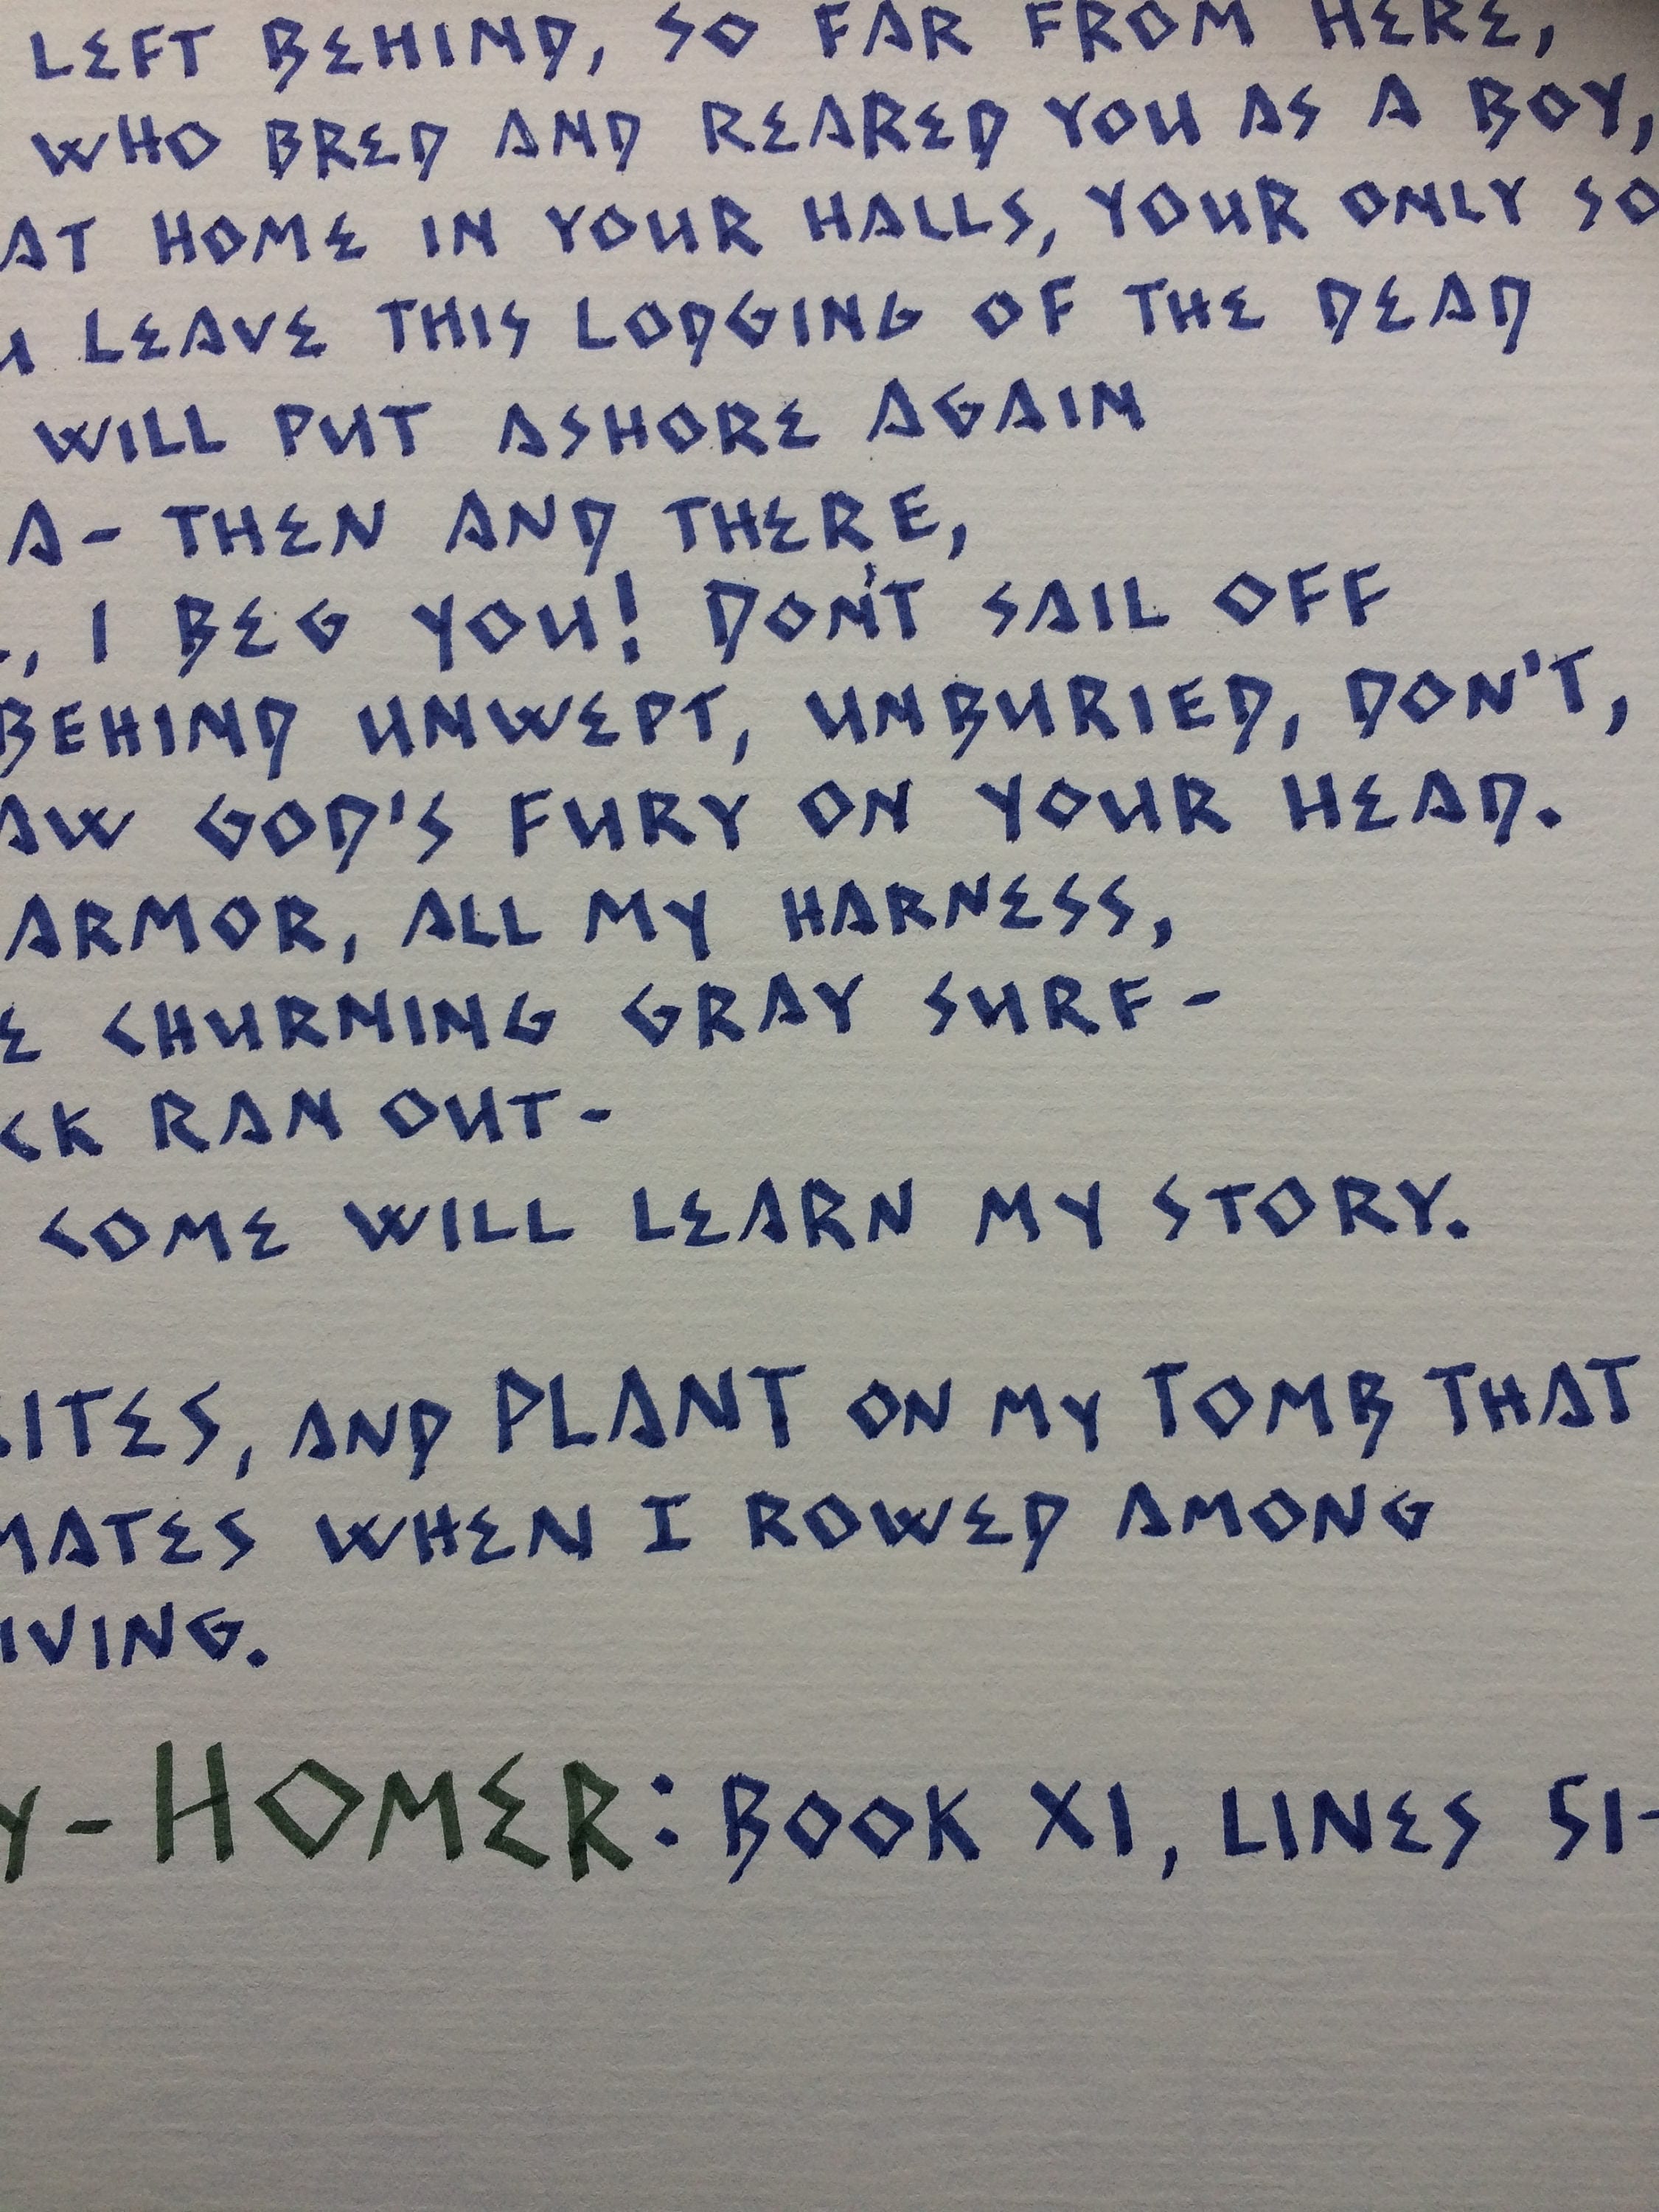 LEFT BEHIND, SO FAR FROM HERE,
WHO BRED AND REARED YOU AS A BOY,
AT HOME IN YOUR HALLS, YOUR ONLY SO
U LEAVE THIS LODGING OF THE DEAD
WILL PUT ASHORE AGAIN
A- THEN AND THERE,
, I BEG YOU! DON'T SAIL OFF
BEHIND UNWEPT, UNBURIED, DON'T,
AW GOD'S FURY ON YOUR HEAD.
ARMOR, ALL MY HARNESS,
E CHURNING GRAY SURF-
CK RAN OUT-
COME WILL LEARN MY STORY.
ITES, AND PLANT ON MY TOMB THAT
MATES WHEN I ROWED AMONG
IVING.
Y-HOMER: BOOK XI, LINES 51-